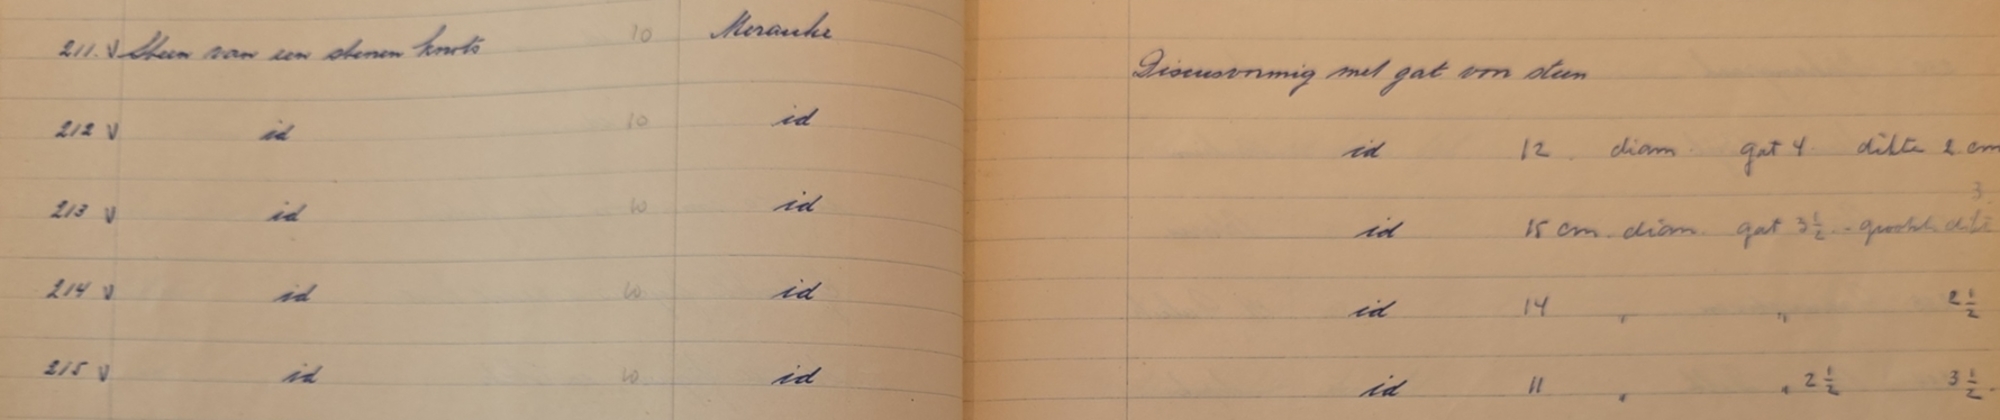 211. V Steen van een stenen knots 10 Merauke Discusvormig met gat von steen
212 V id 10 id id 12 diam. gat 4 dikte 2 cm
3
213 V id 10 id id 15 cm. diam. gat 3 1/2 - grootste dikte
214 V id 10 id id 14 " " 2 1/2
215 V id 10 id id 11 " " 2 1/2 3 1/2